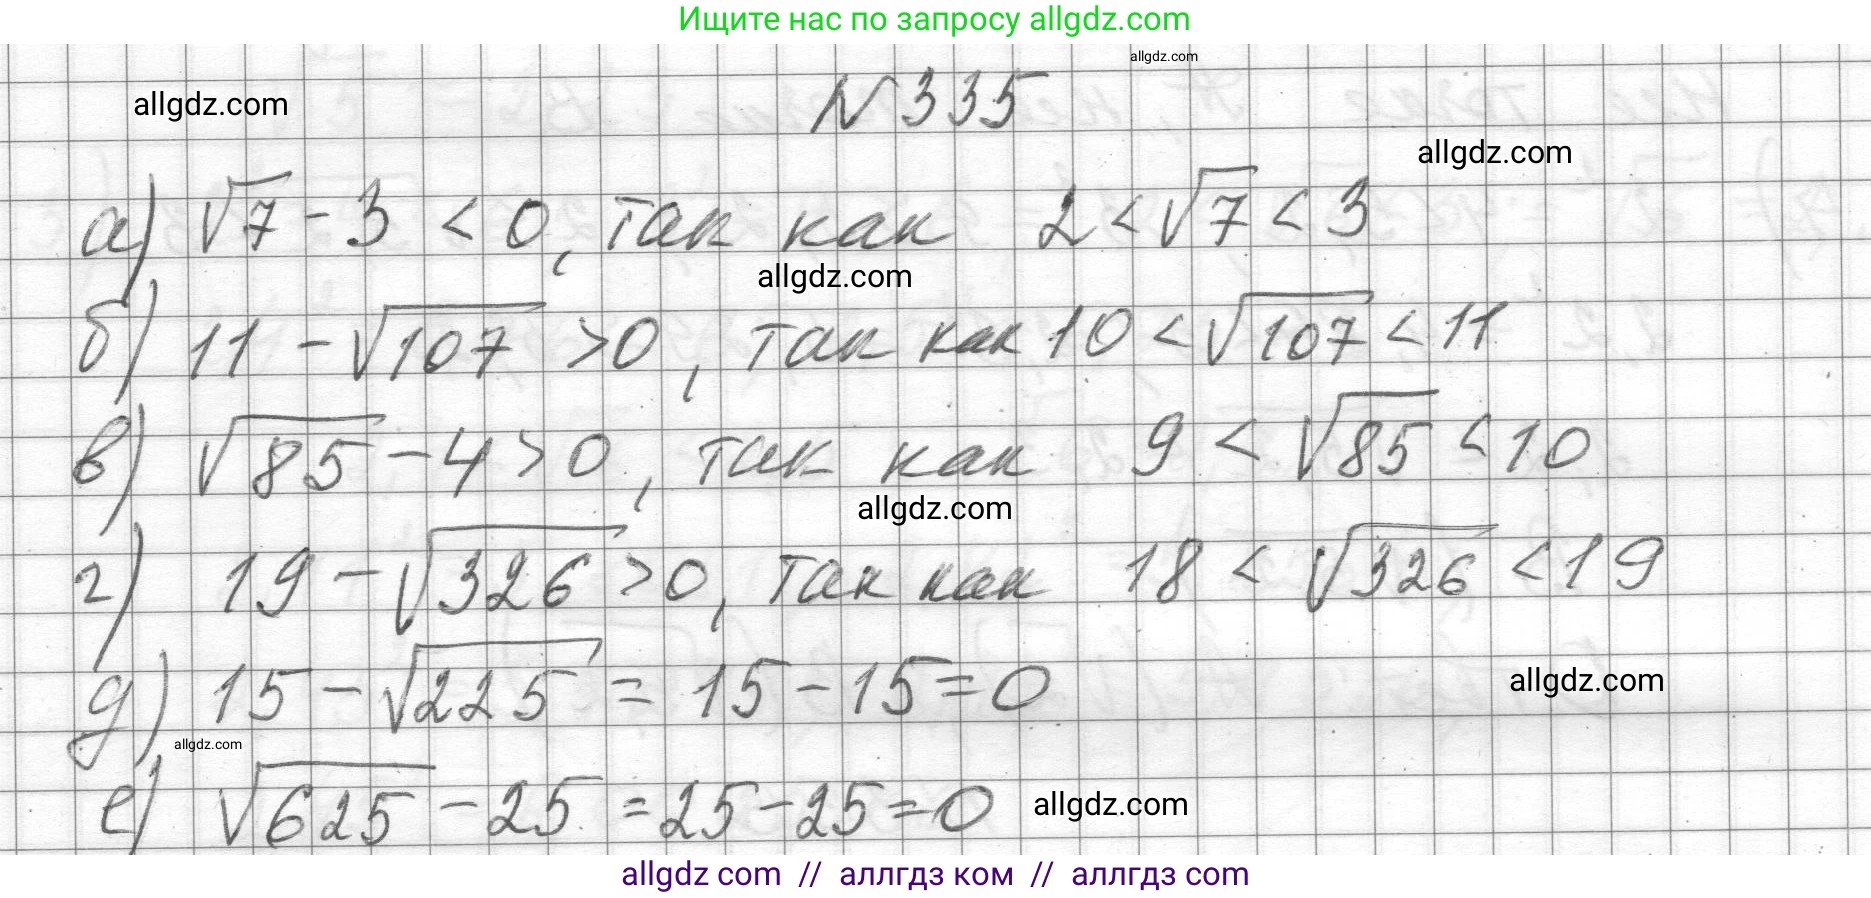 Ищите нас по запросу allgdz.com
allgdz.com
allgdz.com
N 335
allgdz.com
а) √7 - 3 < 0, так как 2 < √7 < 3
allgdz.com
б) 11 - √107 > 0, так как 10 < √107 < 11
в) √85 - 4 > 0, так как 9 < √85 < 10
allgdz.com
г) 19 - √326 > 0, так как 18 < √326 < 19
д) 15 - √225 = 15 - 15 = 0
allgdz.com
allgdz.com
е) √625 - 25 = 25 - 25 = 0
allgdz.com
allgdz com // аллгдз ком // аллгдз com